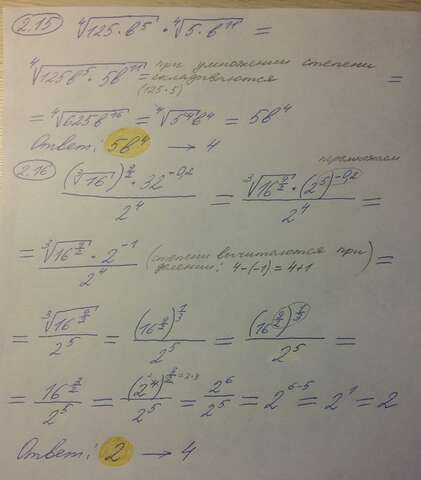 2.15 ⁴√125·b⁵ · ⁴√5·b¹¹ =
⁴√125b⁵·5b¹¹ = при умножении степени складываются (125·5) =
= ⁴√625b¹⁶ = ⁴√5⁴b⁴ = 5b⁴
Ответ: 5b⁴ → 4
перемножаем
2.16 (³√16)^(9/2) · 32^(−0,2) / 2⁴ = ³√16^(9/2) · (2⁵)^(−0,2) / 2⁴ =
= ³√16^(9/2) · 2⁻¹ / 2⁴ (степени вычитаются при делении: 4−(−1)=4+1) =
= ³√16^(9/2) / 2⁵ = (16^(9/2))^(1/3) / 2⁵ = (16^(9/2))^(1/3) / 2⁵ =
= 16^(3/2) / 2⁵ = (2⁴)^(3/2) / 2⁵ = 2⁶ / 2⁵ = 2⁶⁻⁵ = 2¹ = 2
Ответ: 2 → 4